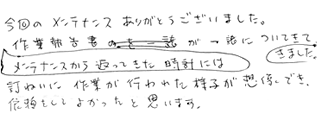 今回のメンテナンスありがとうございました。
作業報告書が一諸についてきて
きました。
メンテナンスから返ってきた時計には
訂ねいに作業が行われた様子が想像でき、
依頼をしてよかったと思います。